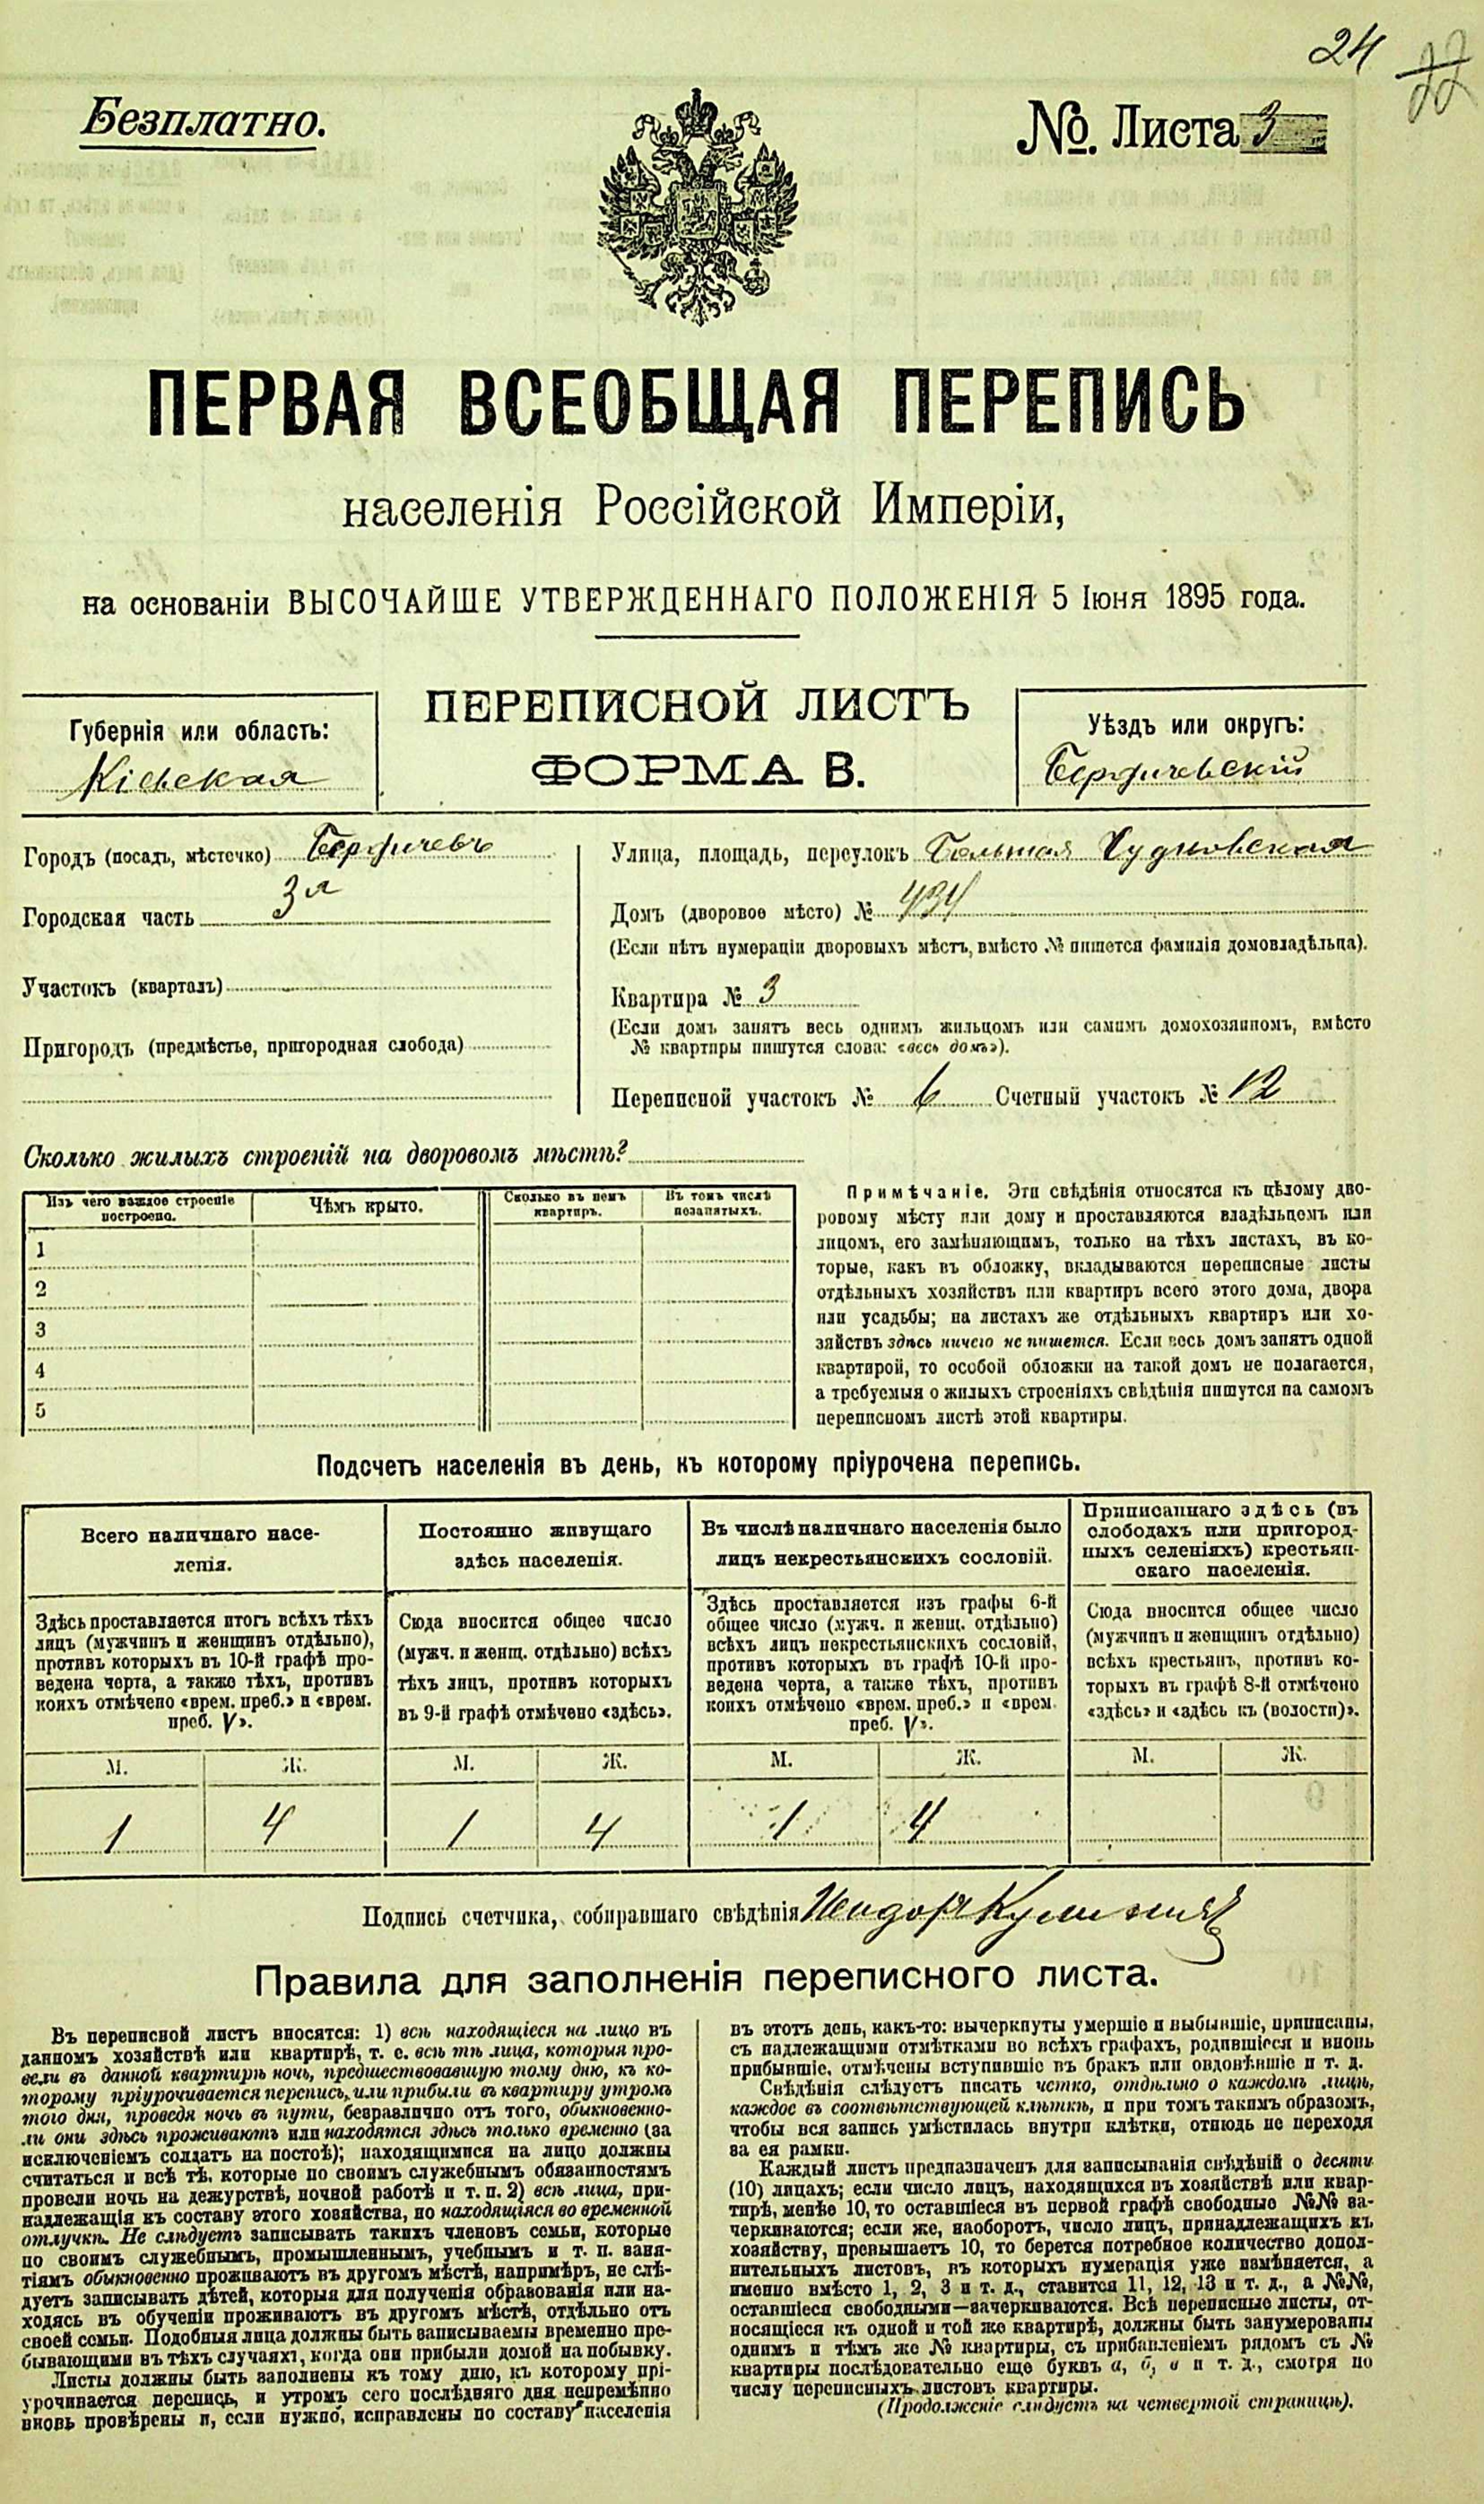 24
77
Безплатно.
№. Листа 3
ПЕРВАЯ ВСЕОБЩАЯ ПЕРЕПИСЬ
населенія Россійской Имперіи,
на основаніи ВЫСОЧАЙШЕ УТВЕРЖДЕННАГО ПОЛОЖЕНІЯ 5 Іюня 1895 года.
Губернія или область:
Кіевская
ПЕРЕПИСНОЙ ЛИСТЪ
ФОРМА В.
Уѣздъ или округъ:
Бердичевскій
Городъ (посадъ, мѣстечко) Бердичевъ
Городская часть 3я
Участокъ (кварталъ)
Пригородъ (предмѣстье, пригородная слобода)
Улица, площадь, переулокъ Большая Чудновская
Домъ (дворовое мѣсто) № 434
(Если нѣтъ нумераціи дворовыхъ мѣстъ, вмѣсто № пишется фамилія домовладѣльца).
Квартира № 3
(Если домъ занятъ весь однимъ жильцомъ или самимъ домохозяиномъ, вмѣсто
№ квартиры пишутся слова: «весь домъ»).
Переписной участокъ № 6 Счетный участокъ № 12
Сколько жилыхъ строеній на дворовомъ мѣстѣ?
Изъ чего каждое строеніе построено.
Чѣмъ крыто.
Сколько въ немъ квартиръ.
Въ томъ числѣ незанятыхъ.
1
2
3
4
5
Примѣчаніе. Эти свѣдѣнія относятся къ цѣлому дво-
ровому мѣсту или дому и проставляются владѣльцемъ или
лицомъ, его замѣняющимъ, только на тѣхъ листахъ, въ ко-
торые, какъ въ обложку, вкладываются переписные листы
отдѣльныхъ хозяйствъ или квартиръ всего этого дома, двора
или усадьбы; на листахъ же отдѣльныхъ квартиръ или хо-
зяйствъ здѣсь ничего не пишется. Если весь домъ занятъ одной
квартирой, то особой обложки на такой домъ не полагается,
а требуемыя о жилыхъ строеніяхъ свѣдѣнія пишутся на самомъ
переписномъ листѣ этой квартиры.
Подсчетъ населенія въ день, къ которому пріурочена перепись.
Всего наличнаго насе-
ленія.
Здѣсь проставляется итогъ всѣхъ тѣхъ
лицъ (мужчинъ и женщинъ отдѣльно),
противъ которыхъ въ 10-й графѣ про-
ведена черта, а также тѣхъ, противъ
коихъ отмѣчено «врем. преб.» и «врем.
преб. V».
М. Ж.
1 4
Постоянно живущаго
здѣсь населенія.
Сюда вносится общее число
(мужч. и женщ. отдѣльно) всѣхъ
тѣхъ лицъ, противъ которыхъ
въ 9-й графѣ отмѣчено «здѣсь».
М. Ж.
1 4
Въ числѣ наличнаго населенія было
лицъ некрестьянскихъ сословій.
Здѣсь проставляется изъ графы 6-й
общее число (мужч. и женщ. отдѣльно)
всѣхъ лицъ некрестьянскихъ сословій,
противъ которыхъ въ графѣ 10-й про-
ведена черта, а также тѣхъ, противъ
коихъ отмѣчено «врем. преб.» и «врем.
преб. V».
М. Ж.
1 4
Приписаннаго здѣсь (въ
слободахъ или пригород-
ныхъ селеніяхъ) крестьян-
скаго населенія.
Сюда вносится общее число
(мужчинъ и женщинъ отдѣльно)
всѣхъ крестьянъ, противъ ко-
торыхъ въ графѣ 8-й отмѣчено
«здѣсь» и «здѣсь къ (волости)».
М. Ж.
Подпись счетчика, собиравшаго свѣдѣнія
Правила для заполненія переписного листа.
Въ переписной листъ вносятся: 1) всѣ находящіеся на лицо въ
данномъ хозяйствѣ или квартирѣ, т. е. всѣ тѣ лица, которыя про-
вели въ данной квартирѣ ночь, предшествовавшую тому дню, къ ко-
торому пріурочивается перепись, или прибыли въ квартиру утромъ
того дня, проведя ночь въ пути, безразлично отъ того, обыкновенно-
ли они здѣсь проживаютъ или находятся здѣсь только временно (за
исключеніемъ солдатъ на постоѣ); находящимися на лицо должны
считаться и всѣ тѣ, которые по своимъ служебнымъ обязанностямъ
провели ночь на дежурствѣ, ночной работѣ и т. п. 2) всѣ лица, при-
надлежащія къ составу этого хозяйства, но находящіяся во временной
отлучкѣ. Не слѣдуетъ записывать такихъ членовъ семьи, которые
по своимъ служебнымъ, промышленнымъ, учебнымъ и т. п. заня-
тіямъ обыкновенно проживаютъ въ другомъ мѣстѣ, напримѣръ, не слѣ-
дуетъ записывать дѣтей, которыя для полученія образованія или на-
ходясь въ обученіи проживаютъ въ другомъ мѣстѣ, отдѣльно отъ
своей семьи. Подобныя лица должны быть записываемы временно пре-
бывающими въ тѣхъ случаяхъ, когда они прибыли домой на побывку.
Листы должны быть заполнены къ тому дню, къ которому прі-
урочивается перепись, и утромъ сего послѣдняго дня непремѣнно
вновь провѣрены и, если нужно, исправлены по составу населенія
въ этотъ день, какъ-то: вычеркнуты умершіе и выбывшіе, приписаны,
съ надлежащими отмѣтками во всѣхъ графахъ, родившіеся и вновь
прибывшіе, отмѣчены вступившіе въ бракъ или овдовѣвшіе и т. д.
Свѣдѣнія слѣдуетъ писать четко, отдѣльно о каждомъ лицѣ,
каждое въ соотвѣтствующей клѣткѣ, и при томъ такимъ образомъ,
чтобы вся запись умѣстилась внутри клѣтки, отнюдь не переходя
за ея рамки.
Каждый листъ предназначенъ для записыванія свѣдѣній о десяти
(10) лицахъ; если число лицъ, находящихся въ хозяйствѣ или квар-
тирѣ, менѣе 10, то оставшіеся въ первой графѣ свободные №№ за-
черкиваются; если же, наоборотъ, число лицъ, принадлежащихъ къ
хозяйству, превышаетъ 10, то берется потребное количество допол-
нительныхъ листовъ, въ которыхъ нумерація уже измѣняется, а
именно вмѣсто 1, 2, 3 и т. д., ставится 11, 12, 13 и т. д., а №№,
оставшіеся свободными—зачеркиваются. Всѣ переписные листы, от-
носящіеся къ одной и той же квартирѣ, должны быть занумерованы
однимъ и тѣмъ же № квартиры, съ прибавленіемъ рядомъ съ №
квартиры послѣдовательно еще буквъ а, б, в и т. д., смотря по
числу переписныхъ листовъ квартиры.
(Продолженіе слѣдуетъ на четвертой страницѣ).